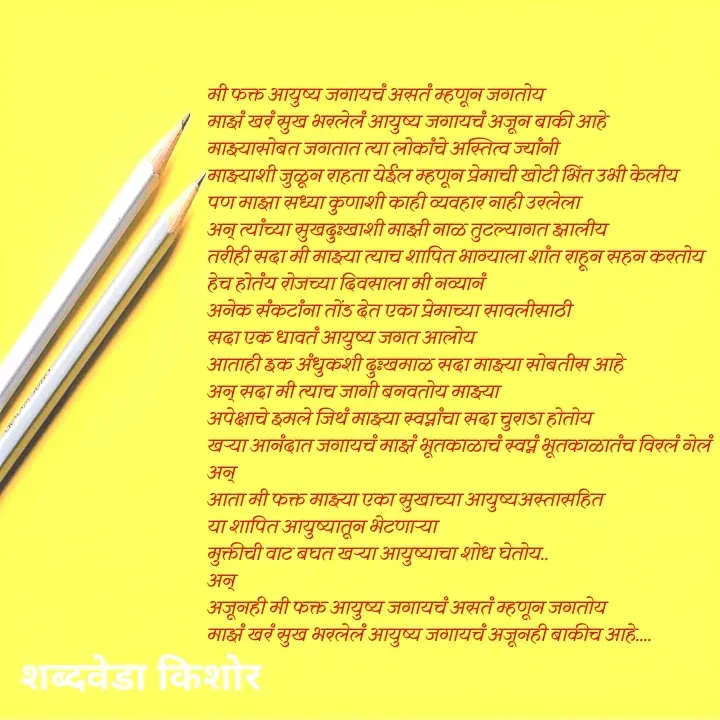 मी फक्त आयुष्य जगायचं असतं म्हणून जगतोय
माझं खरं सुख भरलेलं आयुष्य जगायचं अजून बाकी आहे
माझ्यासोबत जगतात त्या लोकांचे अस्तित्व ज्यांनी
माझ्याशी जुळून राहता येईल म्हणून प्रेमाची खोटी भिंत उभी केलीय
पण माझा सध्या कुणाशी काही व्यवहार नाही उरलेला
अन् त्यांच्या सुखदुःखाशी माझी नाळ तुटल्यागत झालीय
तरीही सदा मी माझ्या त्याच शापित भाग्याला शांत राहून सहन करतोय
हेच होतंय रोजच्या दिवसाला मी नव्यानं
अनेक संकटांना तोंड देत एका प्रेमाच्या सावलीसाठी
सदा एक धावतं आयुष्य जगत आलोय
आताही इक अंधुकशी दुःखमाळ सदा माझ्या सोबतीस आहे
अन् सदा मी त्याच जागी बनवतोय माझ्या
अपेक्षाचे इमले जिथं माझ्या स्वप्नांचा सदा चुराडा होतोय
खऱ्या आनंदात जगायचं माझं भूतकाळाचं स्वप्नं भूतकाळातंच विरलं गेलं
अन्
आता मी फक्त माझ्या एका सुखाच्या आयुष्यअस्तासहित
या शापित आयुष्यातून भेटणाऱ्या
मुक्तीची वाट बघत खऱ्या आयुष्याचा शोध घेतोय..
अन्
अजूनही मी फक्त आयुष्य जगायचं असतं म्हणून जगतोय
माझं खरं सुख भरलेलं आयुष्य जगायचं अजूनही बाकीच आहे....
शब्दवेडा किशोर